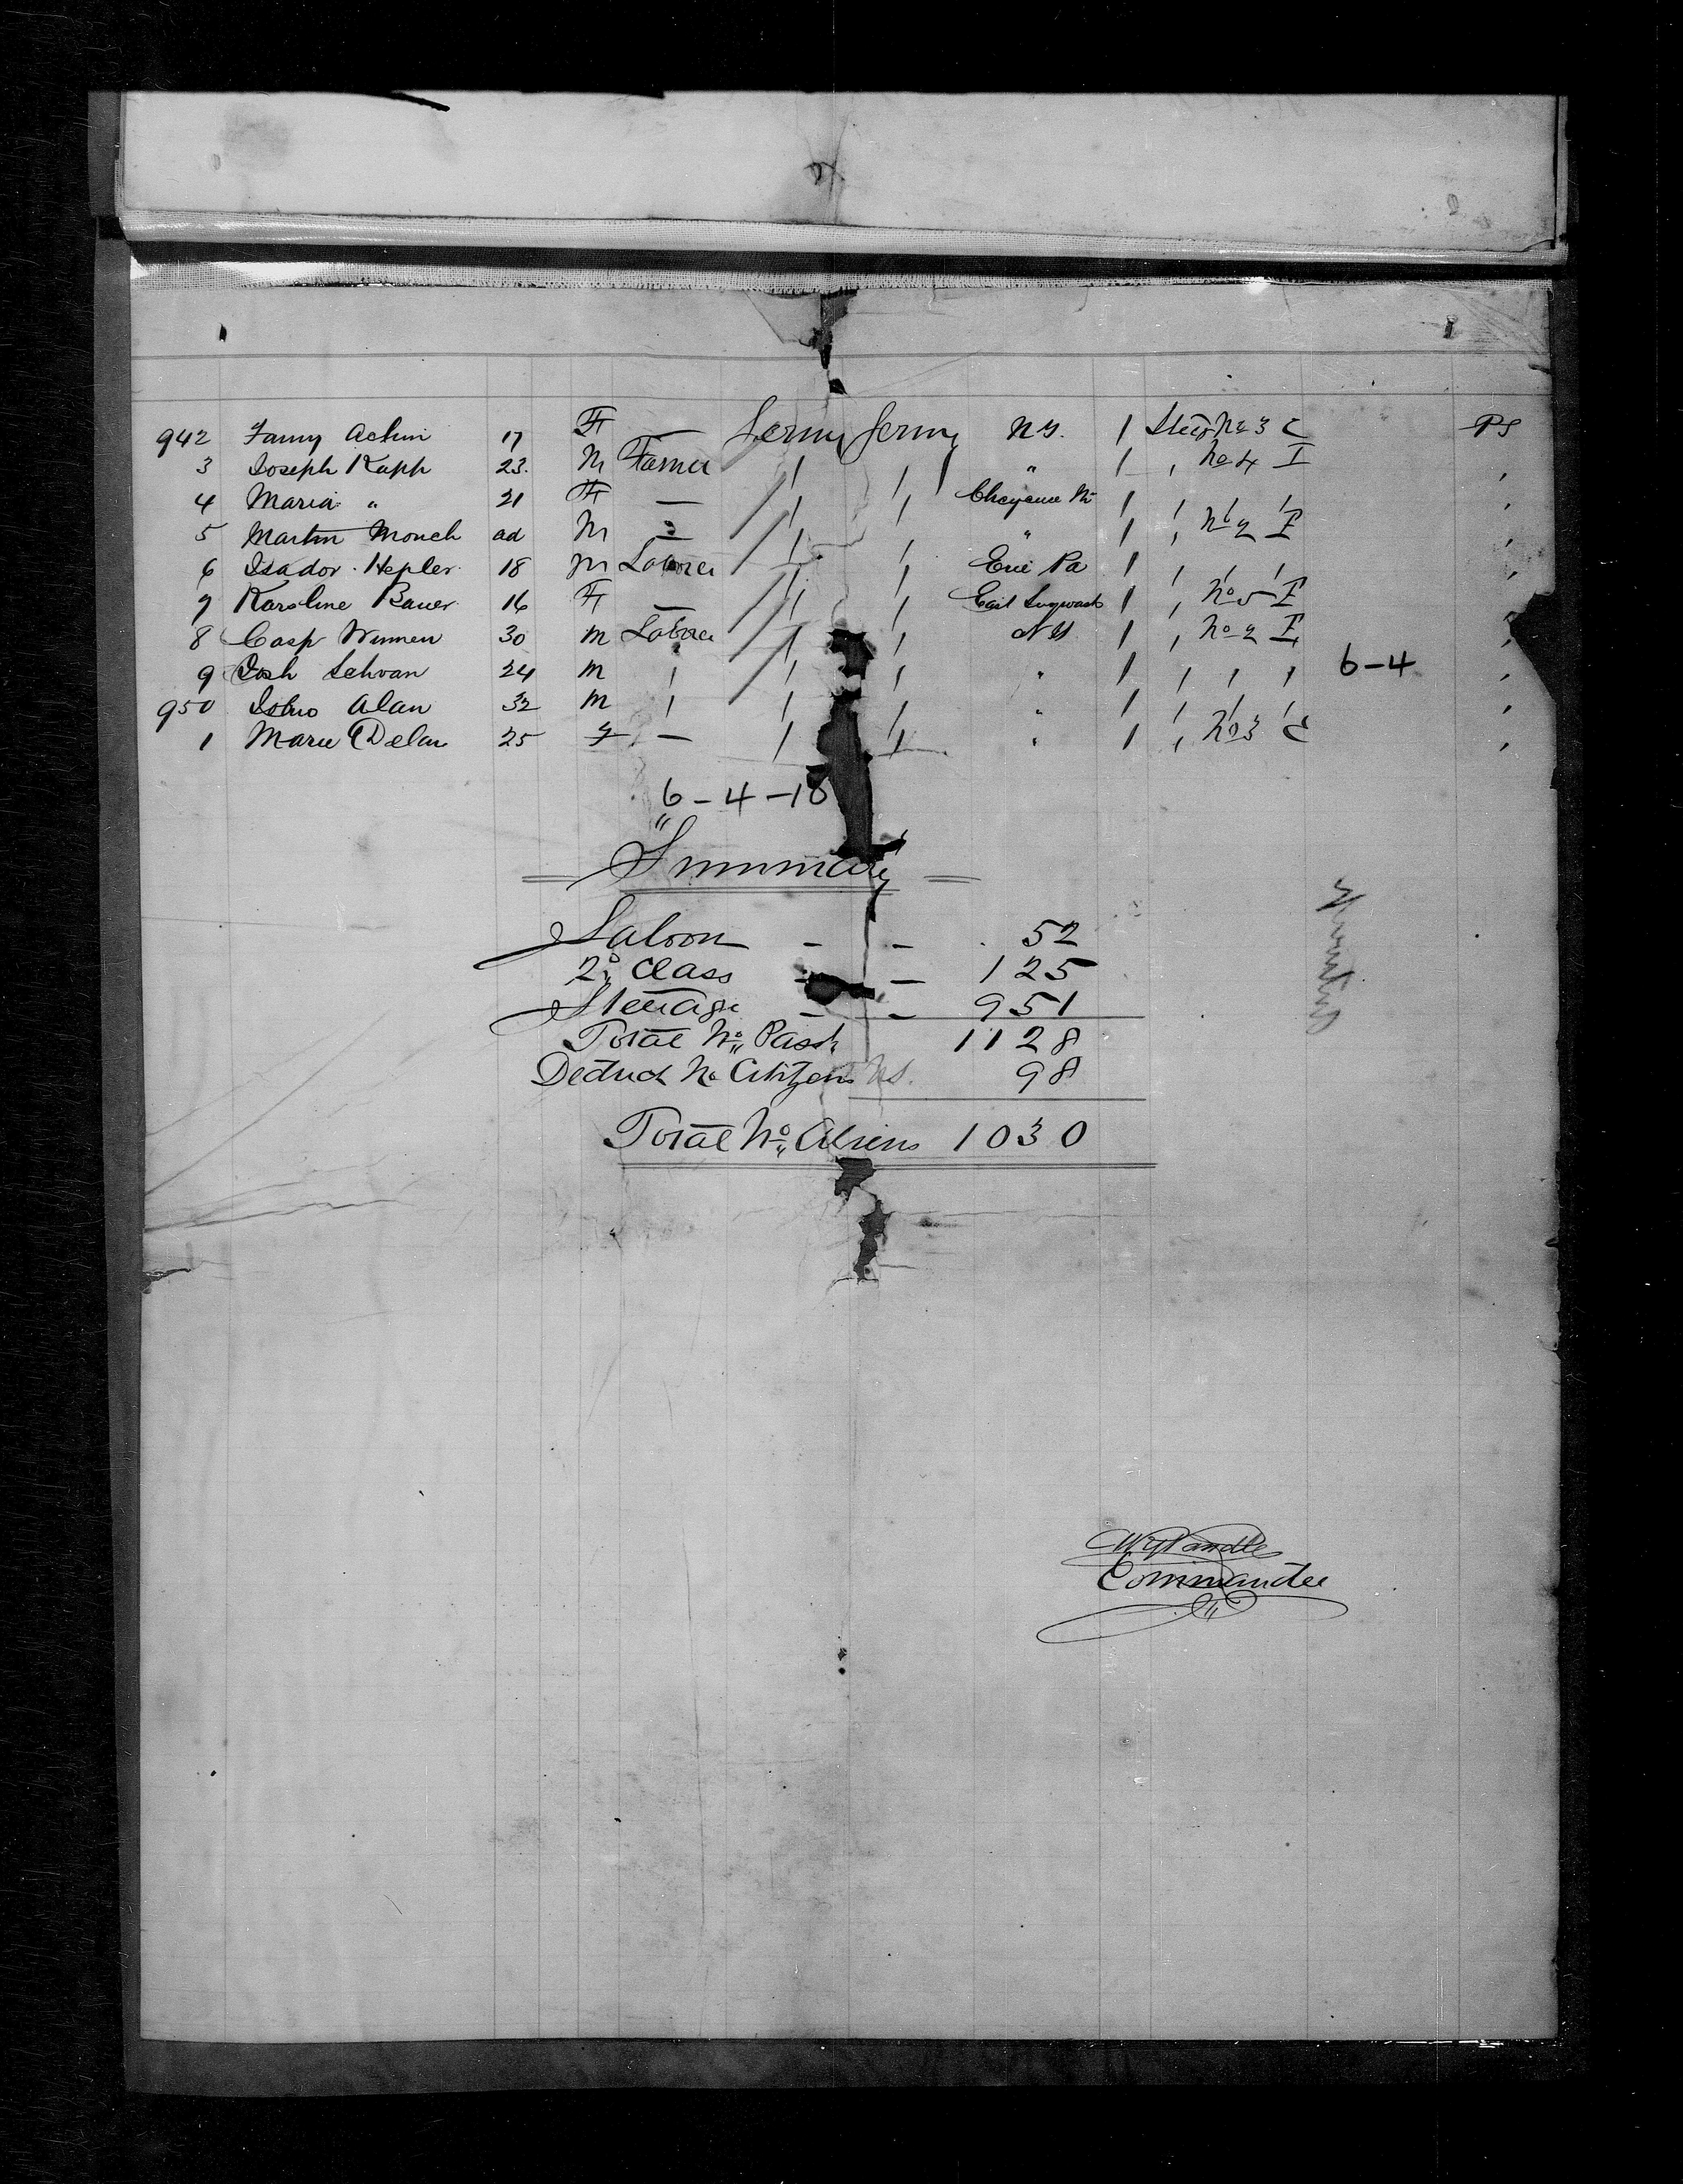 942 Fanny Achin 17 F — Germy Germy NY. 1 Steig No 3 C PS
3 Joseph Kapp 23. M Farmer / / " 1 , No 4 I ,
4 Maria " 21 F — / / Cheyenne 1 / / / ,
5 Martin Monch ad M — / / " 1 , No 2 I ,
6 Isador Hepler 18 M Laborer / / Erie Pa 1 / / / ,
7 Karoline Bauer 16 F — / / East 1 , No 5 I ,
8 Casp Wimmen 30 M Laborer / / NY 1 , No 2 I ,
9 Josh Schvan 24 M / / / " 1 / / / 6-4 ,
950 Alan 32 M / / / " 1 / / / ,
1 Marie Delau 25 F — / / " 1 , No 3 C ,
6-4-18
Summary
Saloon - - 52
2o Class - - 125
Steerage - - 951
Total No Pass 1128
Deduct No Citizens U.S. 98
Total No Aliens 1030
Commander